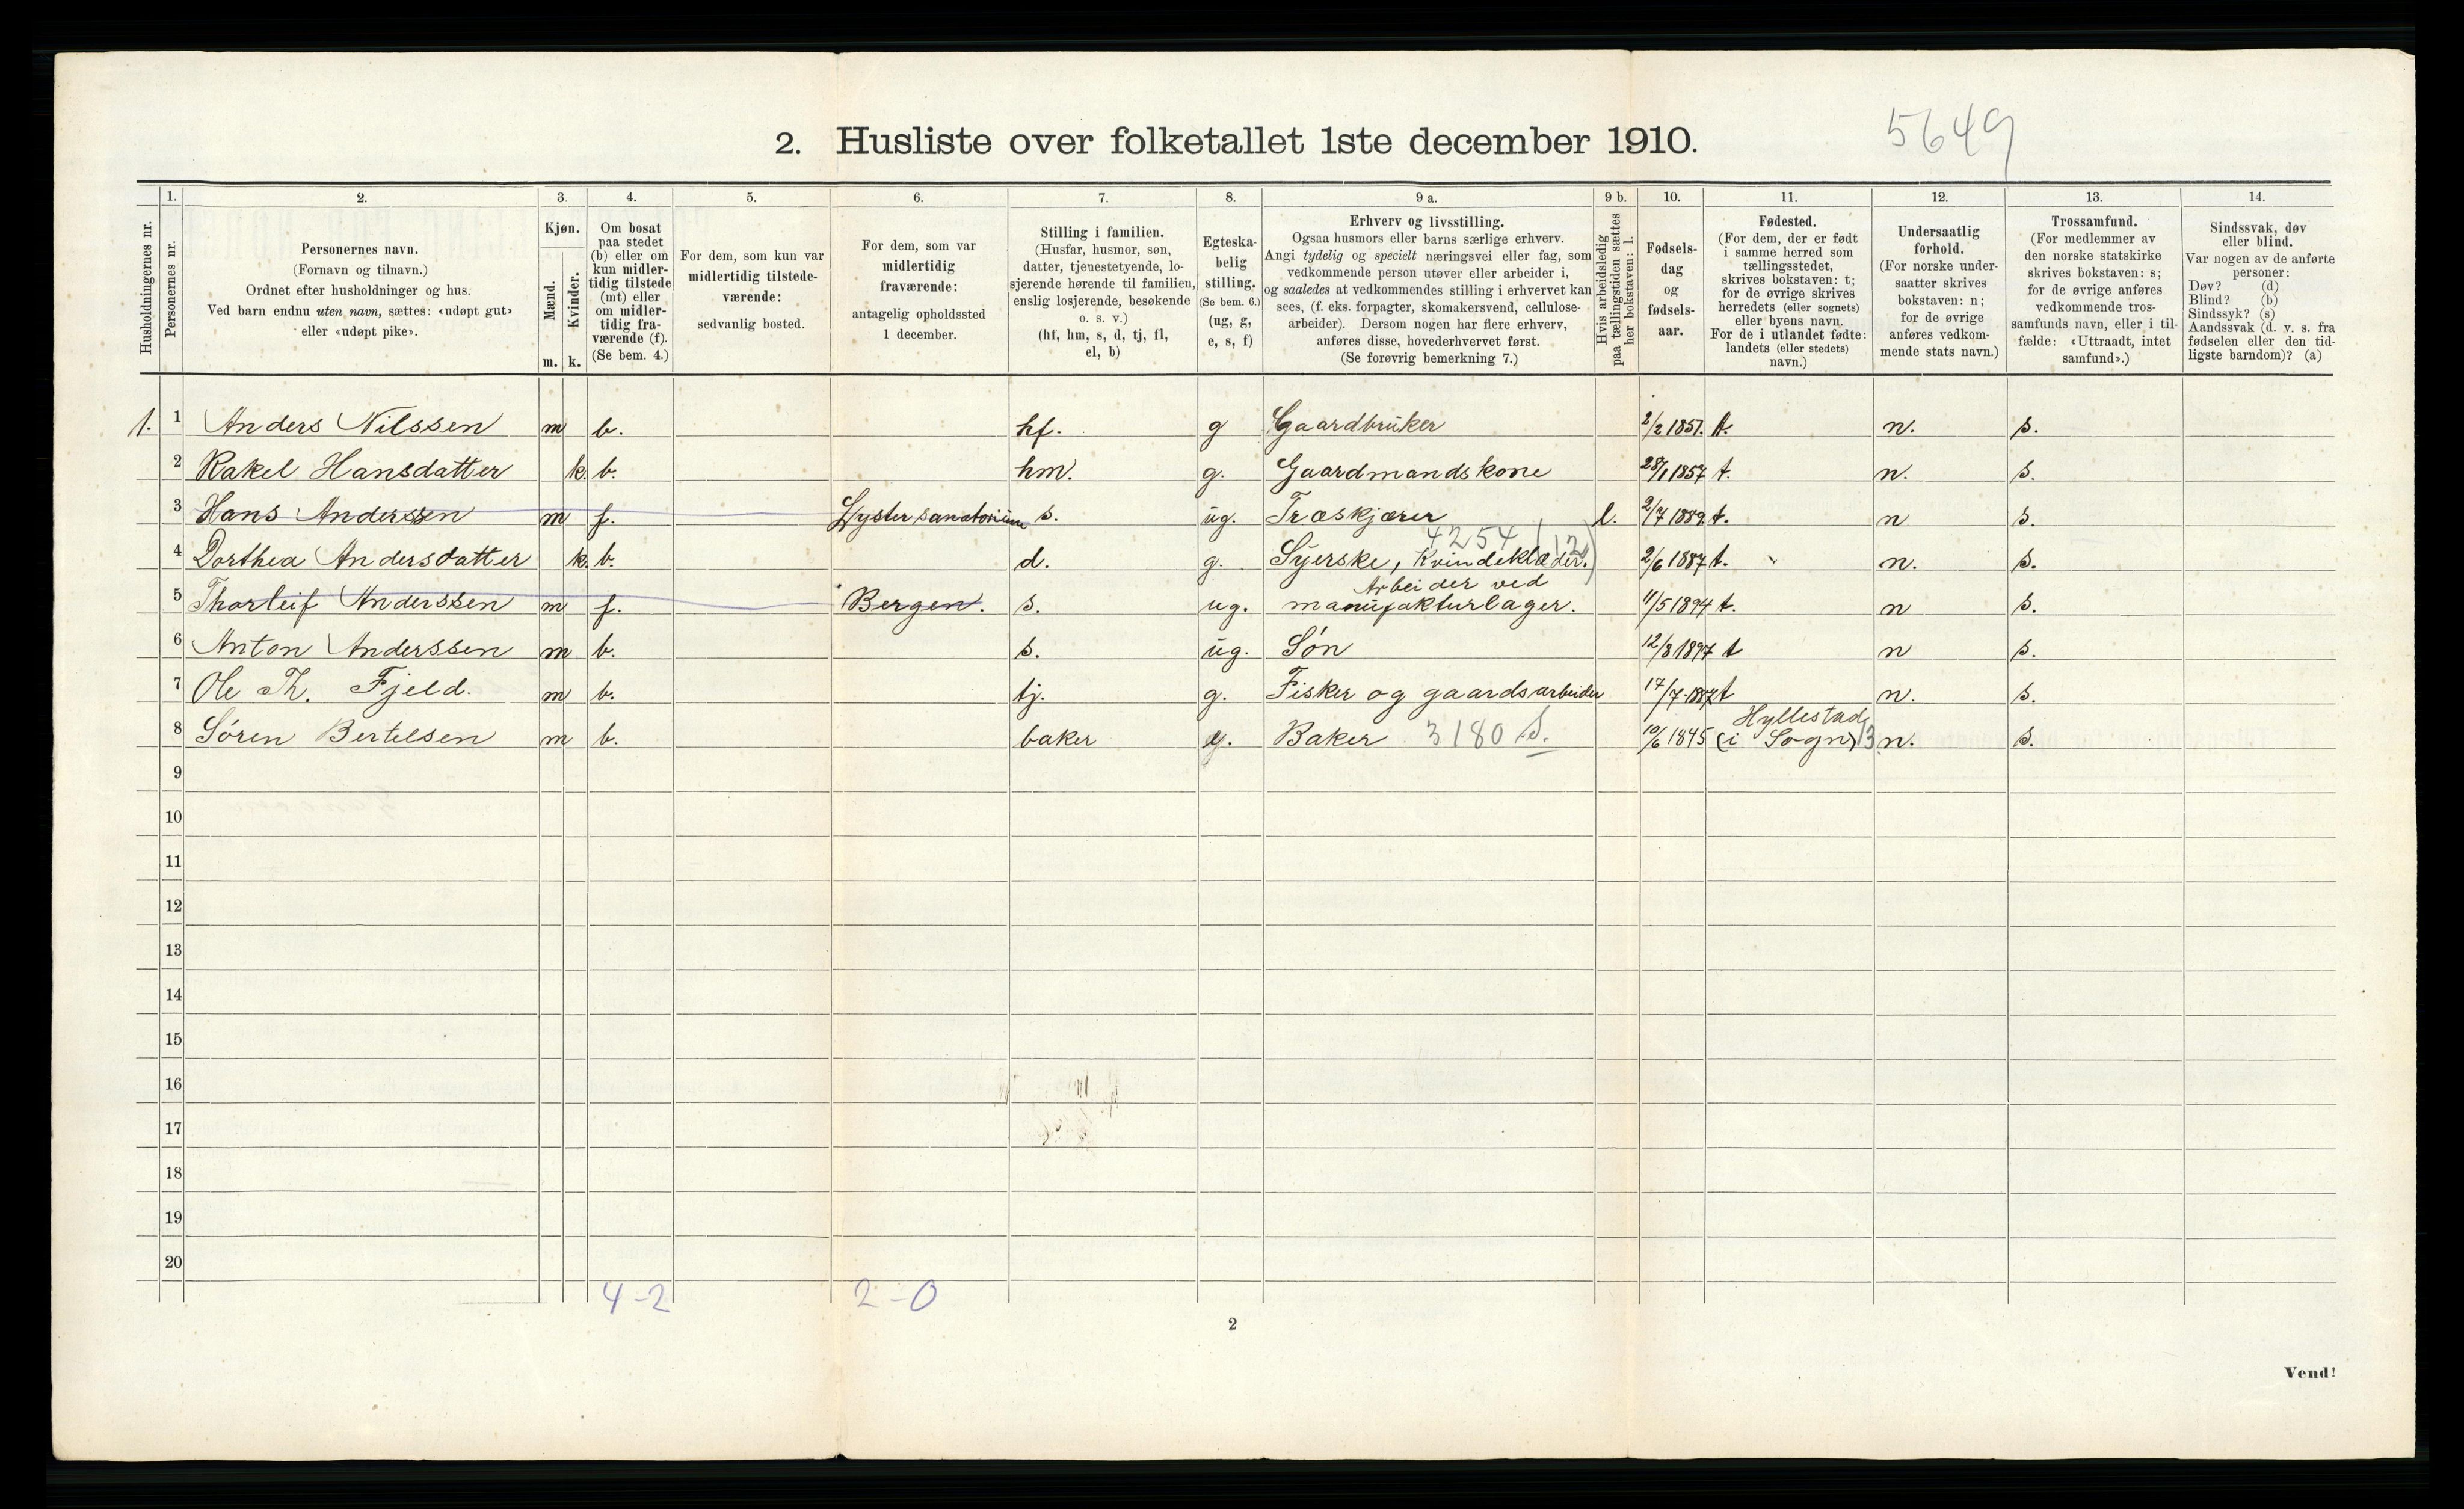 5649
2. Husliste over folketallet 1ste december 1910.
Husholdningernes nr.
1. Personernes nr.
2. Personernes navn.
(Fornavn og tilnavn.)
Ordnet efter husholdninger og hus.
Ved barn endnu uten navn, sættes: «udøpt gut»
eller «udøpt pike».
3. Kjøn.
Mænd. m.
Kvinder. k.
4. Om bosat
paa stedet
(b) eller om
kun midler-
tidig tilstede
(mt) eller
om midler-
tidig fra-
værende (f).
(Se bem. 4.)
5. For dem, som kun var
midlertidig tilstede-
værende:
sedvanlig bosted.
6. For dem, som var
midlertidig
fraværende:
antagelig opholdssted
1 december.
7. Stilling i familien.
(Husfar, husmor, søn,
datter, tjenestetyende, lo-
sjerende hørende til familien,
enslig losjerende, besøkende
o. s. v.)
(hf, hm, s, d, tj, fl,
el, b)
8. Egteska-
belig
stilling.
(Se bem. 6.)
(ug, g,
e, s, f)
9 a. Erhverv og livsstilling.
Ogsaa husmors eller barns særlige erhverv.
Angi tydelig og specielt næringsvei eller fag, som
vedkommende person utøver eller arbeider i,
og saaledes at vedkommendes stilling i erhvervet kan
sees, (f. eks. forpagter, skomakersvend, cellulose-
arbeider). Dersom nogen har flere erhverv,
anføres disse, hovederhvervet først.
(Se forøvrig bemerkning 7.)
9 b. Hvis arbeidsledig
paa tællingstiden sættes
her bokstaven: l.
10. Fødsels-
dag
og
fødsels-
aar.
11. Fødested.
(For dem, der er født
i samme herred som
tællingsstedet,
skrives bokstaven: t;
for de øvrige skrives
herredets (eller sognets)
eller byens navn.
For de i utlandet fødte:
landets (eller stedets)
navn.)
12. Undersaatlig
forhold.
(For norske under-
saatter skrives
bokstaven: n;
for de øvrige
anføres vedkom-
mende stats navn.)
13. Trossamfund.
(For medlemmer av
den norske statskirke
skrives bokstaven: s;
for de øvrige anføres
vedkommende tros-
samfunds navn, eller i til-
fælde: «Uttraadt, intet
samfund».)
14. Sindssvak, døv
eller blind.
Var nogen av de anførte
personer:
Døv? (d)
Blind? (b)
Sindssyk? (s)
Aandssvak (d. v. s. fra
fødselen eller den tid-
ligste barndom)? (a)
1. 1 Anders Nilssen m b. hf. g Gaardbruker 2/2 1851. t. n. s.
2 Rakel Hansdatter k. b. hm. g. Gaardmandskone 28/1 1857 t. n. s.
3 Hans Anderssen m f. Lyster sanatorium s. ug. Træskjærer l. 2/7 1889. t. n s.
4254 (12)
4 Dorthea Andersdatter k. b. d. g. Syerske, Kvindeklæder. 2/6 1887 t. n. s.
Arbeider ved
5 Thorleif Anderssen m f. Bergen. s. ug. manufakturlager. 11/5 1894 t. n s.
6 Anton Anderssen m b. s. ug. Søn 12/8 1897 t n s.
7 Ole Th. Fjeld. m b. tj. g. Fisker og gaardsarbeider 17/7-1887 t n. s.
Hyllestad
8 Søren Bertelsen m b. baker g. Baker 3180 S. 10/6 1845 (i Sogn) 13 n. s.
9
10
11
12
13
14
15
16
17
18
19
20
4-2 2-0
2
Vend!